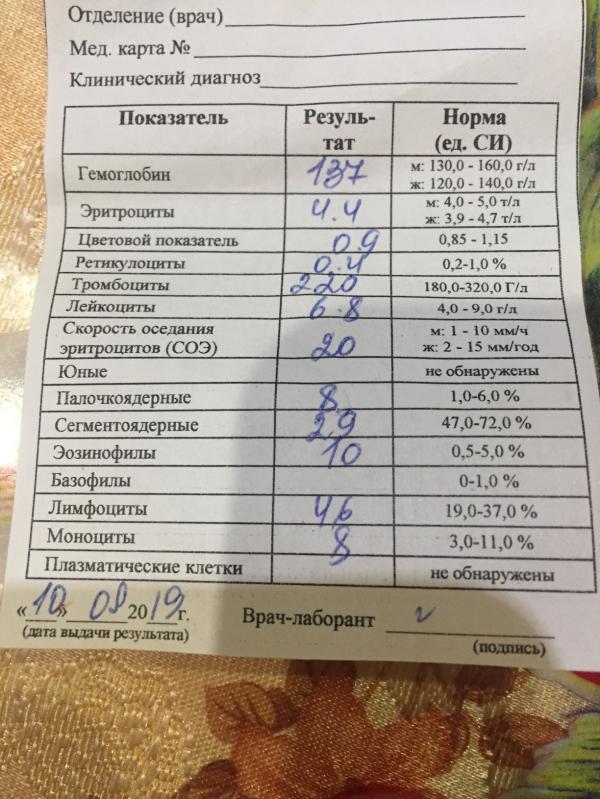 Отделение (врач)
Мед. карта №
Клинический диагноз
Показатель Резуль-тат Норма (ед. СИ)
Гемоглобин 137 м: 130,0 - 160,0 г/л ж: 120,0 - 140,0 г/л
Эритроциты 4.4 м: 4,0 - 5,0 т/л ж: 3,9 - 4,7 т/л
Цветовой показатель 0.9 0,85 - 1,15
Ретикулоциты 0.4 0,2-1,0 %
Тромбоциты 220 180,0-320,0 Г/л
Лейкоциты 6.8 4,0 - 9,0 г/л
Скорость оседания эритроцитов (СОЭ) 20 м: 1 - 10 мм/ч ж: 2 - 15 мм/год
Юные не обнаружены
Палочкоядерные 8 1,0-6,0 %
Сегментоядерные 29 47,0-72,0 %
Эозинофилы 10 0,5-5,0 %
Базофилы 0-1,0 %
Лимфоциты 46 19,0-37,0 %
Моноциты 8 3,0-11,0 %
Плазматические клетки не обнаружены
«10» 08 2019г. Врач-лаборант
(дата выдачи результата) (подпись)